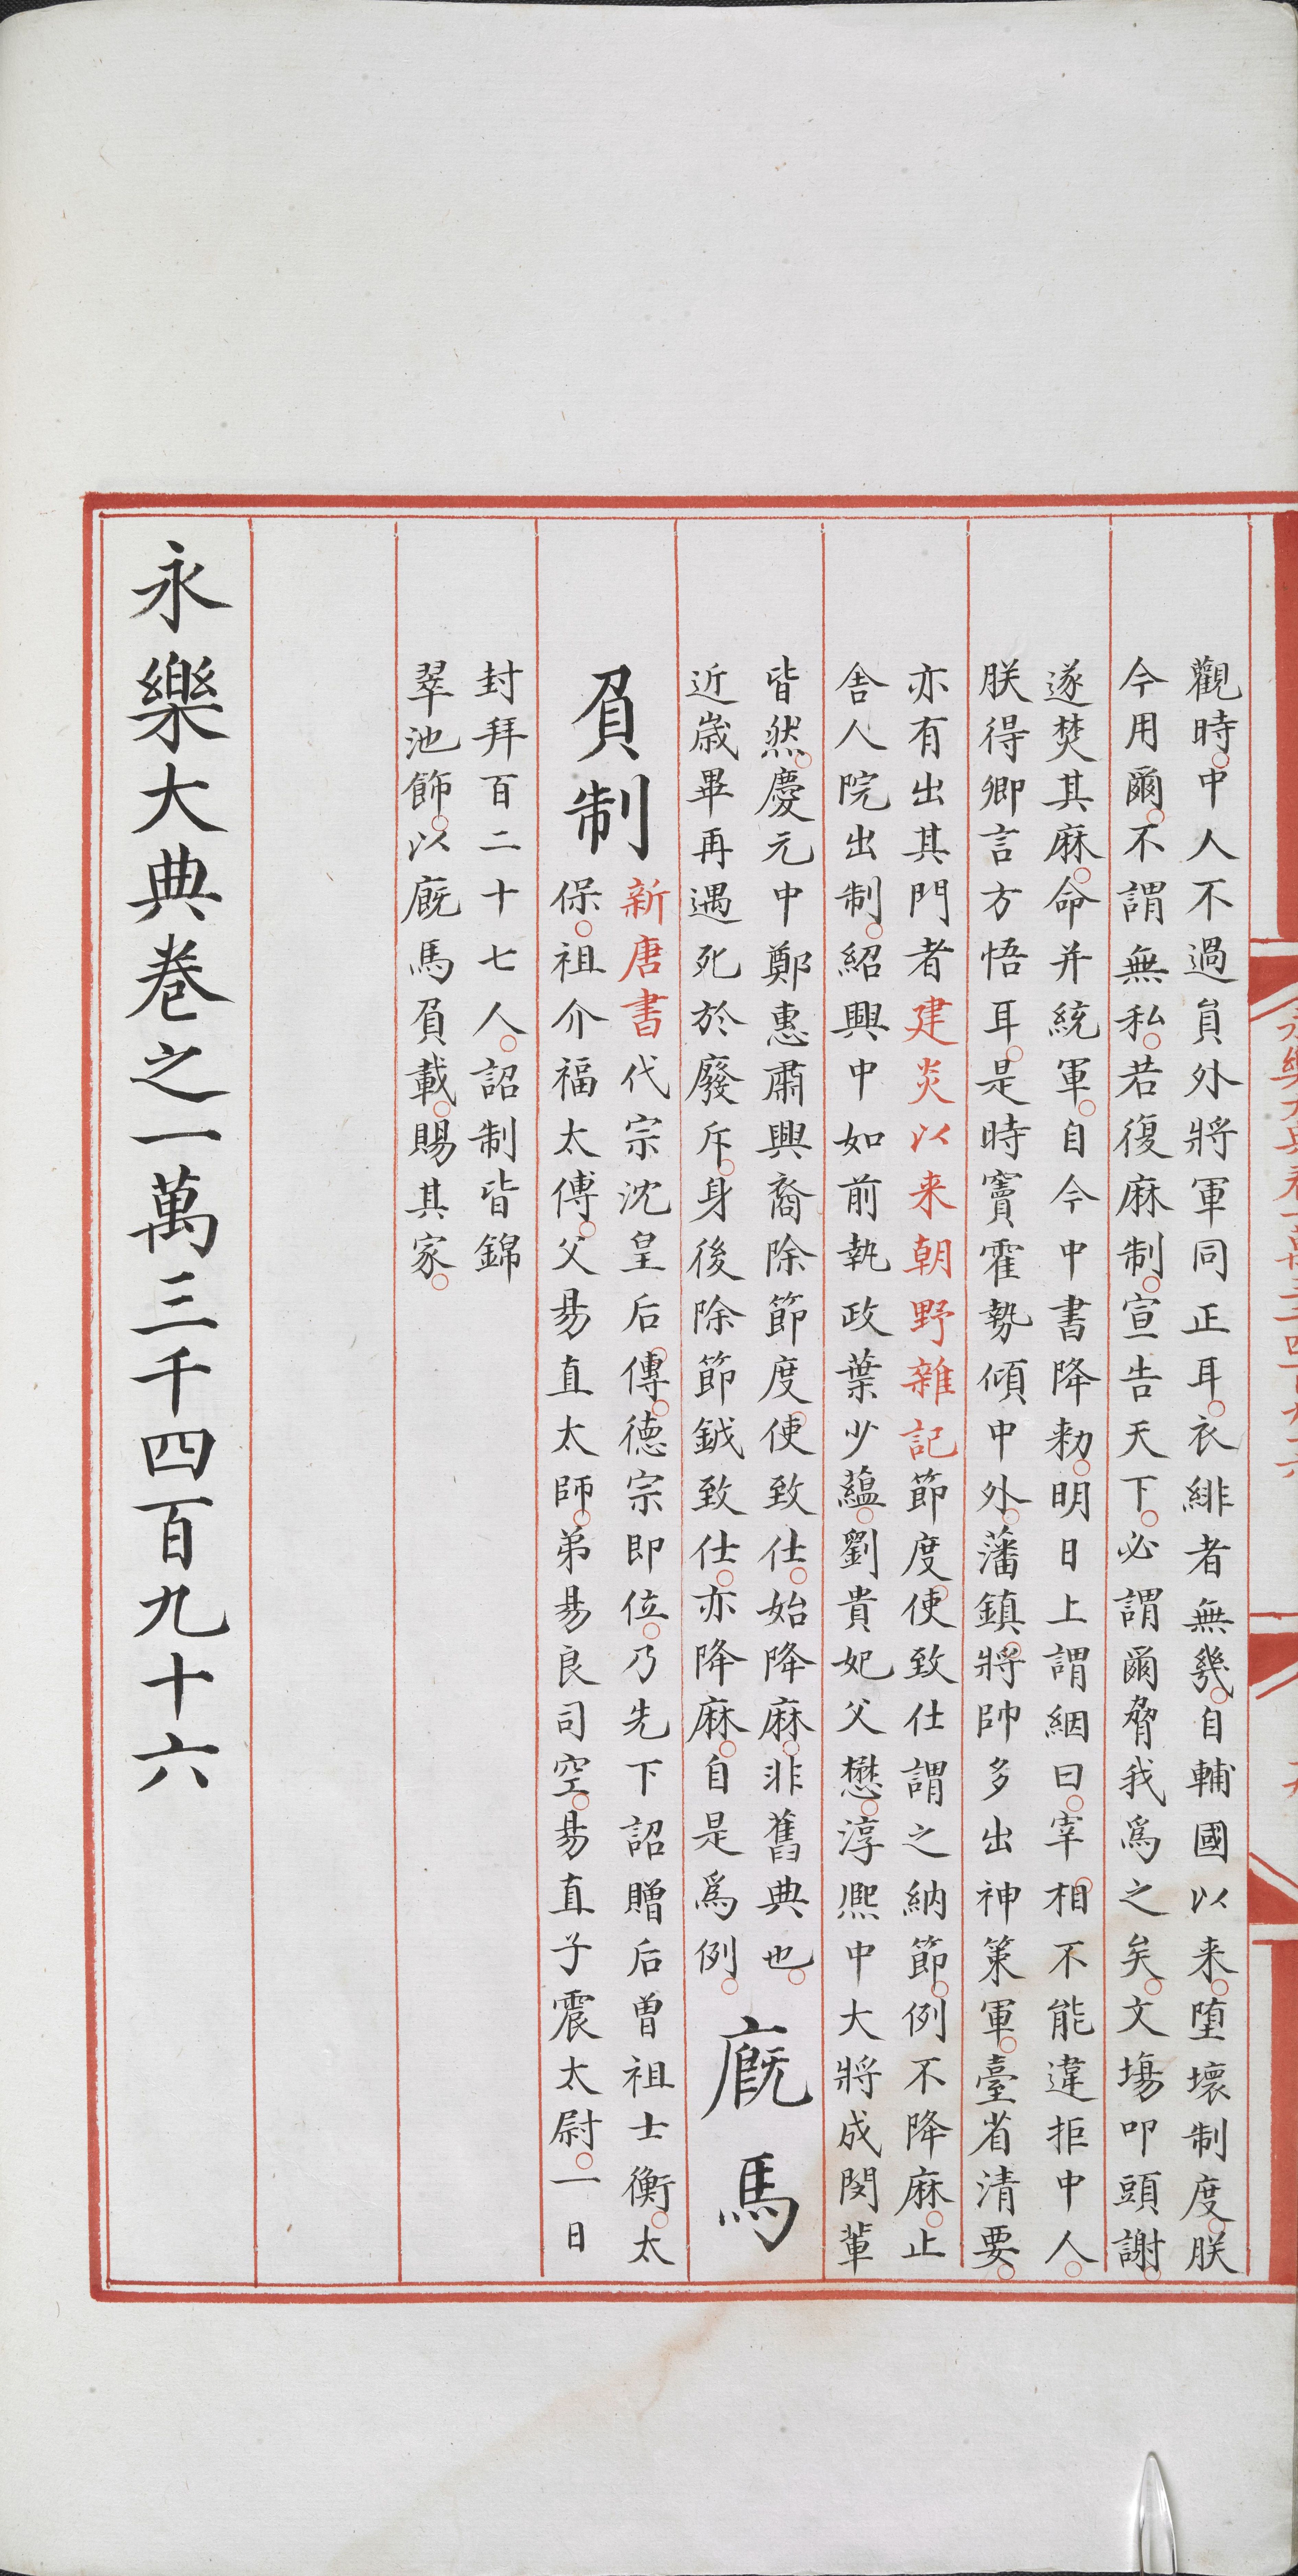 觀時中人不過員外將軍同正耳衣緋者無幾自輔國以来墮壞制度朕
今用爾不謂無私若復麻制宣告天下必謂爾脅我爲之矣文塲叩頭謝
遂焚其麻命并統軍自今中書降敕明日上謂絪曰宰相不能違拒中人
朕得卿言方悟耳是時竇霍勢傾中外藩鎮將帥多出神策軍臺省清要
亦有出其門者建炎以来朝野雜記節度使致仕謂之納節例不降麻止
舍人院出制紹興中如前執政葉少蘊劉貴妃父懋淳熈中大將成閔輩
皆然慶元中鄭惠肅興裔除節度使致仕始降麻非舊典也
近歲畢再遇死於廢斥身後除節鉞致仕亦降麻自是爲例
廐馬
負制
新唐書代宗沈皇后傳德宗即位乃先下詔贈后曽祖士衡太
保祖介福太傅父易直太師弟易良司空易直子震太尉一日
封拜百二十七人詔制皆錦
翠池飾以廐馬負載賜其家
永樂大典卷之一萬三千四百九十六